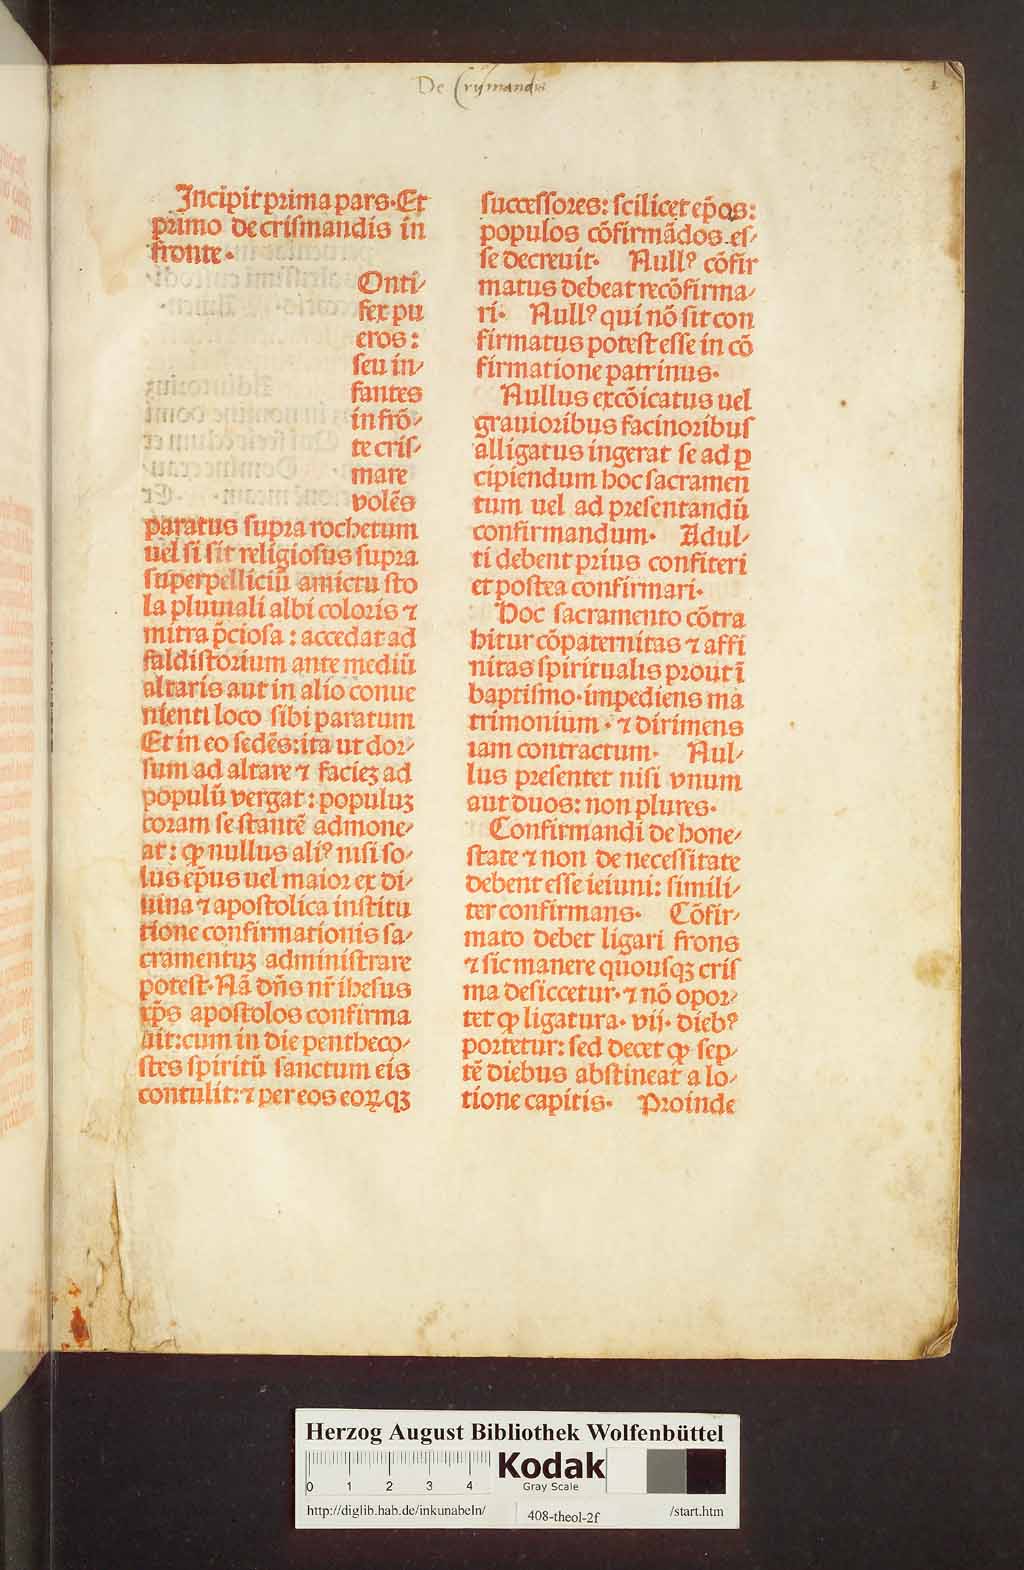 De Crysmandis
1
Incipit prima pars. Et
primo de crismandis in
fronte.
Onti-
fex pu
eros:
seu in-
fantes
in frõ-
te cris-
mare
volẽs
paratus supra rochetum
uel si sit religiosus supra
superpelliciũ amictu sto
la pluuiali albi coloris ⁊
mitra p̃ciosa: accedat ad
faldistorium ante mediũ
altaris aut in alio conue
nienti loco sibi paratum
Et in eo sedẽs: ita ut dor-
sum ad altare ⁊ facieꝫ ad
populũ vergat: populuꝫ
coram se stantẽ admone-
at: ꝙ nullus aliꝰ nisi so-
lus ep̃us uel maior ex di-
uina ⁊ apostolica institu
tione confirmationis sa-
cramentuꝫ administrare
potest. Nã dñs nr̃ ihesus
xp̃s apostolos confirma
uit: cum in die pentheco-
stes spiritũ sanctum eis
contulit: ⁊ per eos eoꝝqꝫ
successores: scilicet ep̃os:
populos cõfirmãdos es-
se decreuit. Nullꝰ cõfir
matus debeat recõfirma-
ri. Nullꝰ qui nõ sit con
firmatus potest esse in cõ
firmatione patrinus.
Nullus excõicatus uel
grauioribus facinoribus
alligatus ingerat se ad ꝑ
cipiendum hoc sacramen
tum uel ad presentandũ
confirmandum. Adul-
ti debent prius confiteri
et postea confirmari.
Hoc sacramento cõtra
hitur cõpaternitas ⁊ affi
nitas spiritualis prout ĩ
baptismo. impediens ma
trimonium. ⁊ dirimens
iam contractum. Nul-
lus presentet nisi vnum
aut duos: non plures.
Confirmandi de hone-
state ⁊ non de necessitate
debent esse ieiuni: simili-
ter confirmans. Cõfir-
mato debet ligari frons
⁊ sic manere quousqꝫ cris
ma desiccetur. ⁊ nõ opor-
tet ꝙ ligatura. vij. diebꝰ
portetur: sed decet ꝙ sep-
tẽ diebus abstineat a lo-
tione capitis. Proinde
Herzog August Bibliothek Wolfenbüttel
0 1 2 3 4
Kodak
Gray Scale
http://diglib.hab.de/inkunabeln/ 408-theol-2f /start.htm